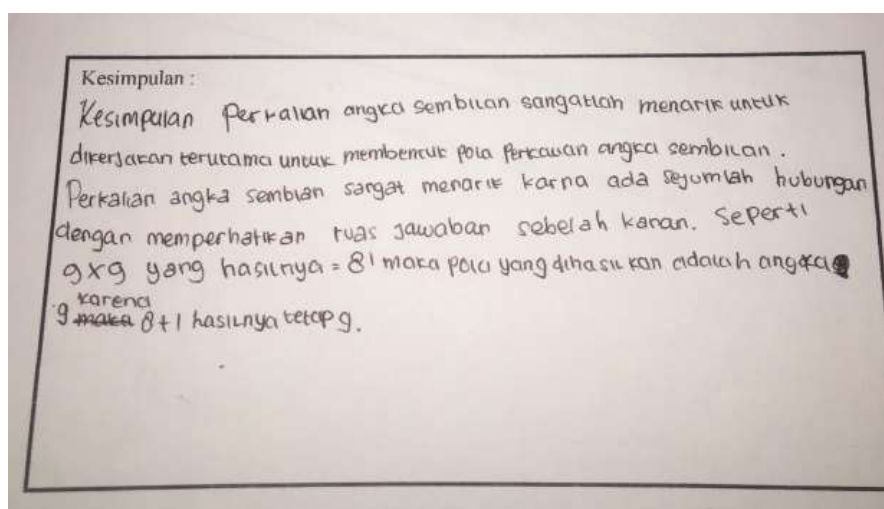 Kesimpulan :
Kesimpulan Perkalian angka sembilan sangatlah menarik untuk
dikerjakan terutama untuk membentuk pola Perkalian angka sembilan.
Perkalian angka sembilan sangat menarik karna ada sejumlah hubungan
dengan memperhatikan ruas jawaban sebelah kanan. Seperti
9x9 yang hasilnya = 81 maka pola yang dihasilkan adalah angka
karena
9 maka 8+1 hasilnya tetap 9.